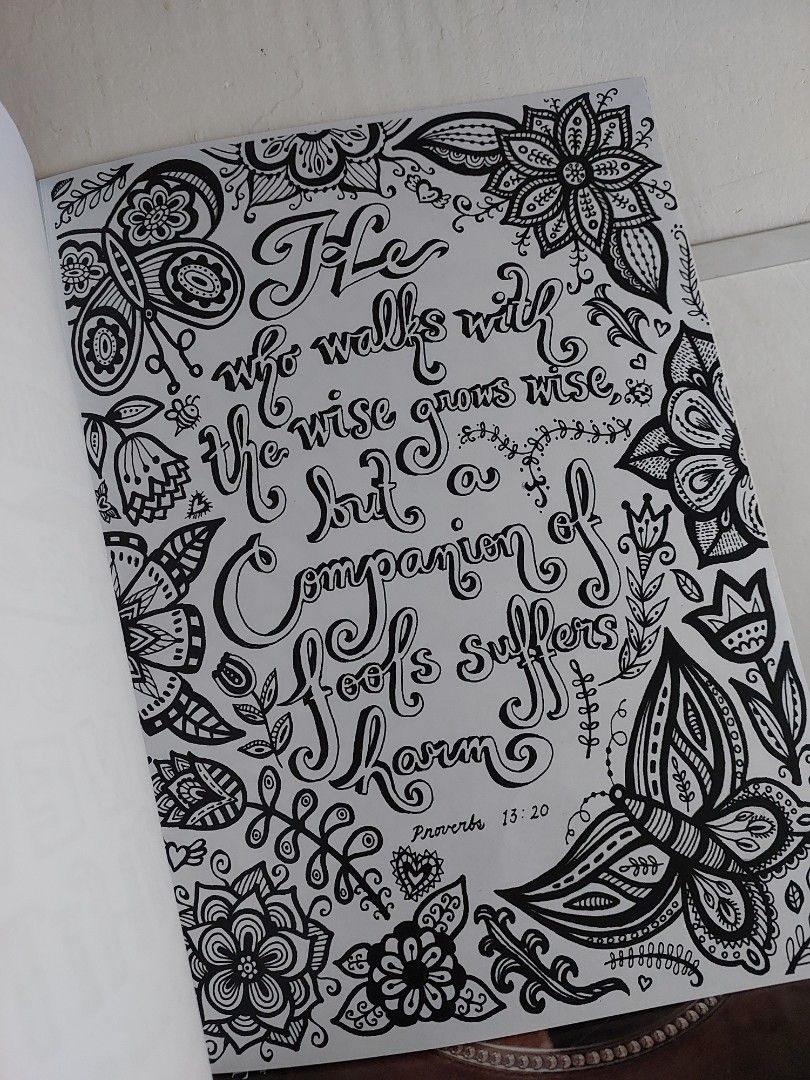 He
who walks with
the wise grows wise,
but a
Companion of
fools suffers
harm
Proverbs 13:20